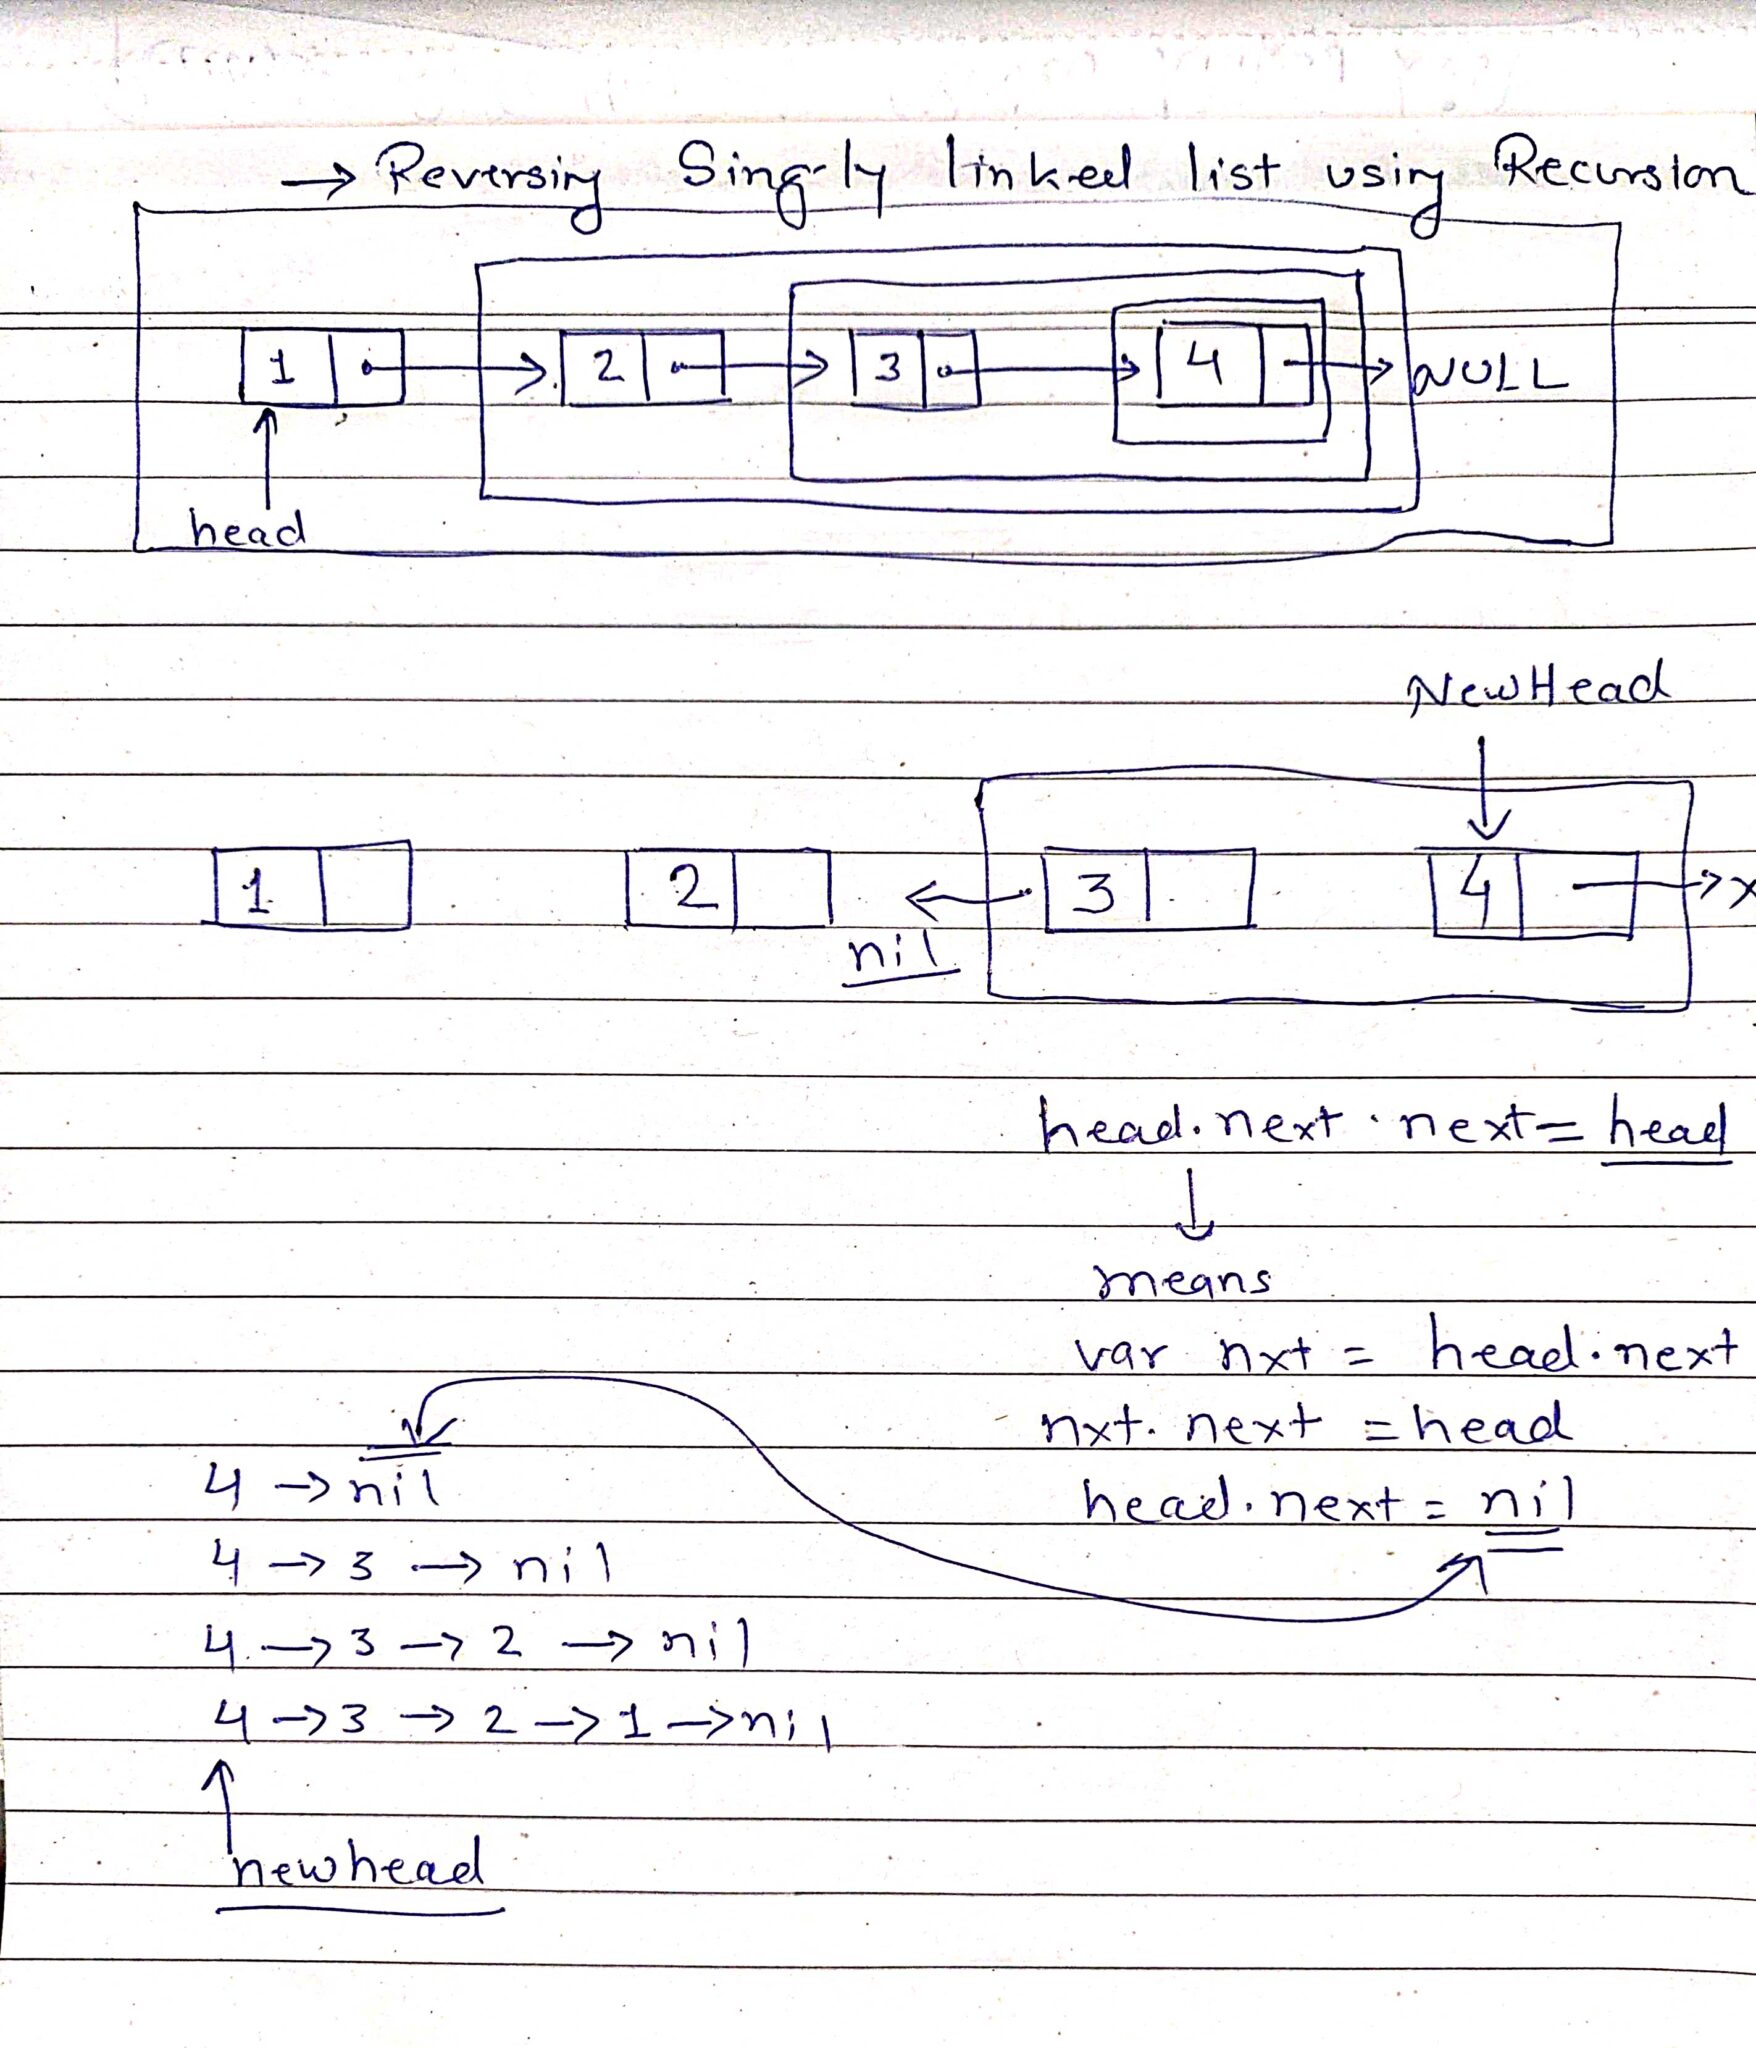 → Reversing Singly linked list using Recursion
1 → 2 → 3 → 4 → NULL
head
NewHead
1 2 ← 3 4 → x
nil
head.next.next = head
↓
means
var nxt = head.next
nxt.next = head
head.next = nil
4 → nil
4 → 3 → nil
4 → 3 → 2 → nil
4 → 3 → 2 → 1 → nil
newhead